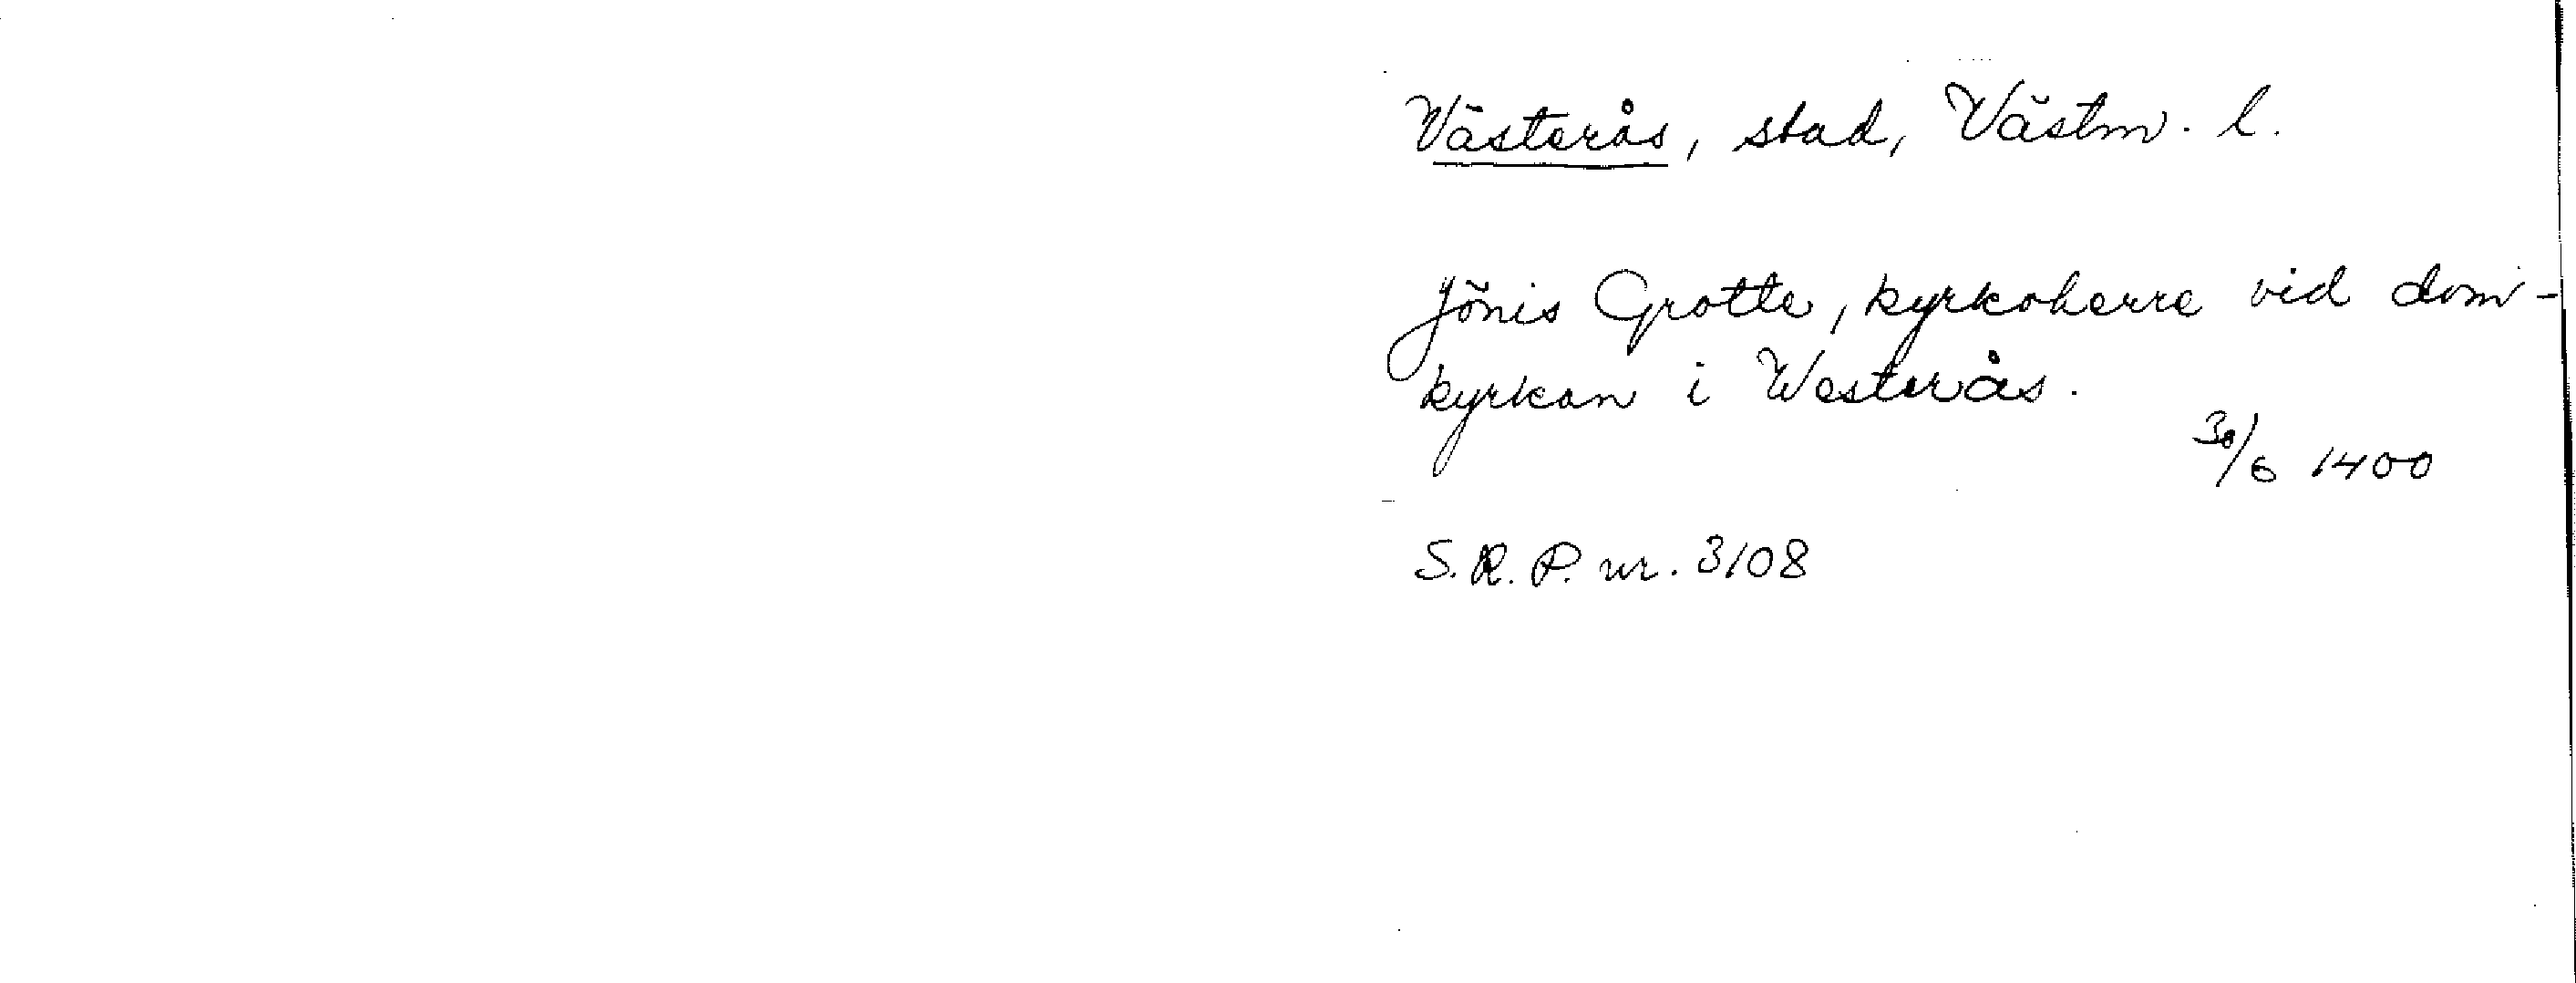 Västerås, stad, Västm. l.
Jönis Grotte, kyrkoherre vid dom-
kyrkan i Westerås.
30/6 1400
S.R.P. nr. 3108